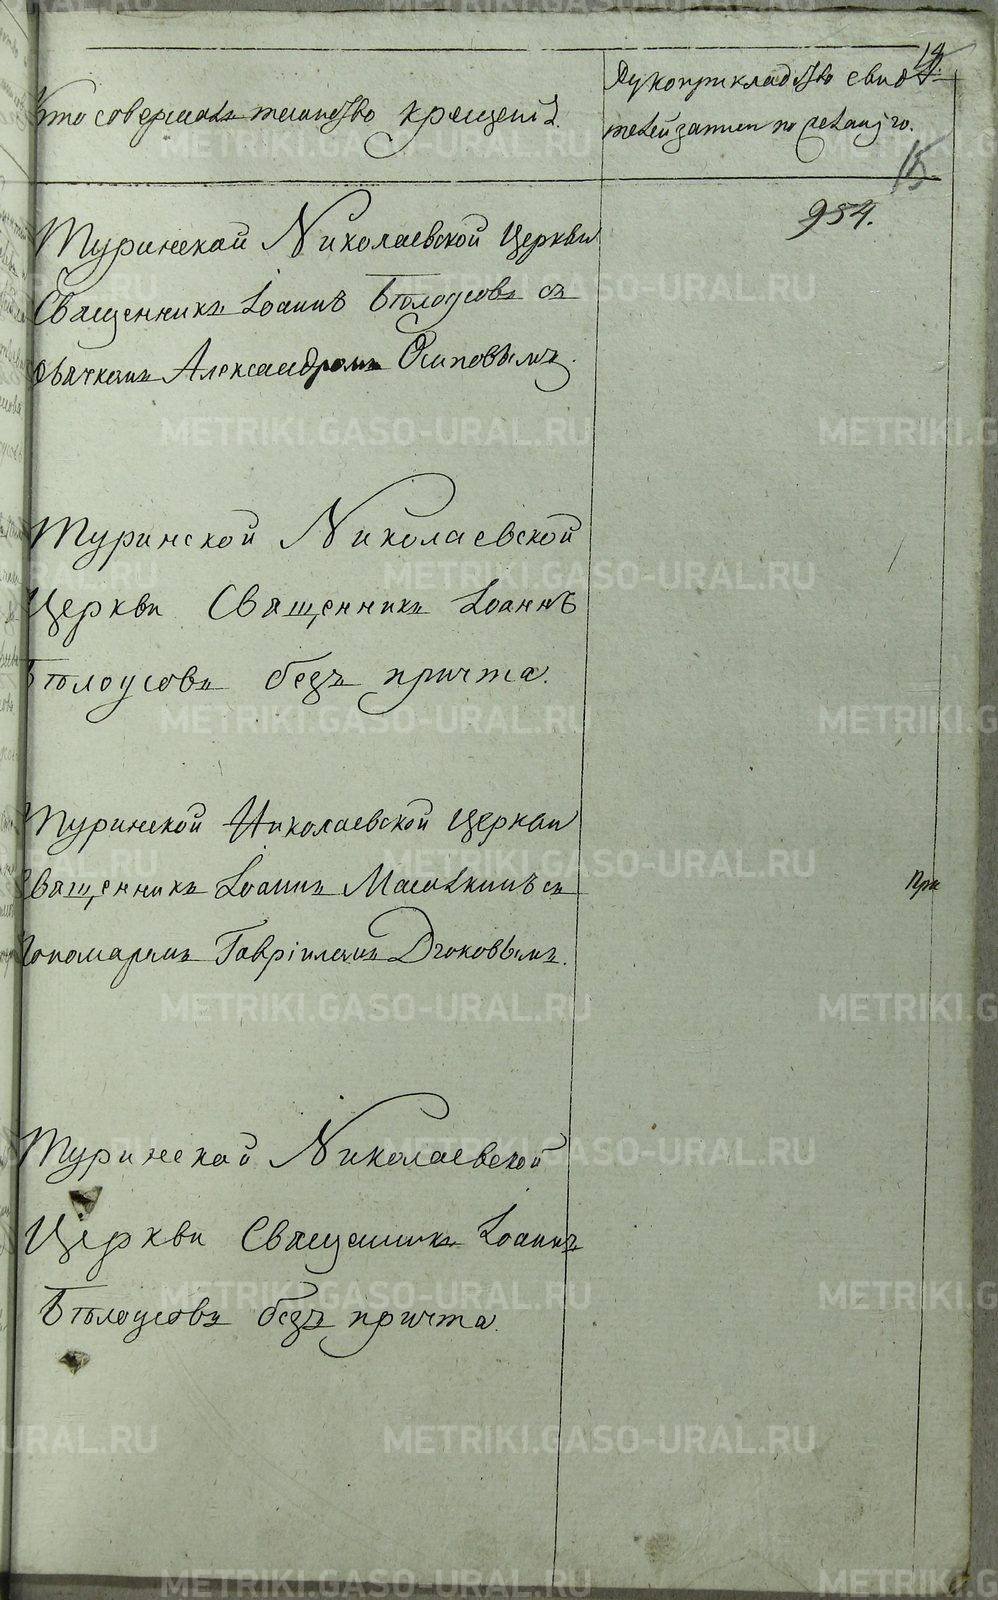 Кто совершалъ таинство крещенiя.
Рукоприкладство свидѣ-
телей записи по желанiю.
14
15
954.
Туринской Николаевской Церкви
Священникъ Iоаннъ Бѣлоусовъ съ
дьячкомъ Александромъ Осиповымъ.
Туринской Николаевской
Церкви Священникъ Iоаннъ
Бѣлоусовъ безъ причта.
Туринской Николаевской Церкви
Священникъ Iоаннъ съ
Пономаремъ Гаврiиломъ
Туринской Николаевской
Церкви Священникъ Iоаннъ
Бѣлоусовъ безъ причта.
При
METRIKI.GASO-URAL.RU